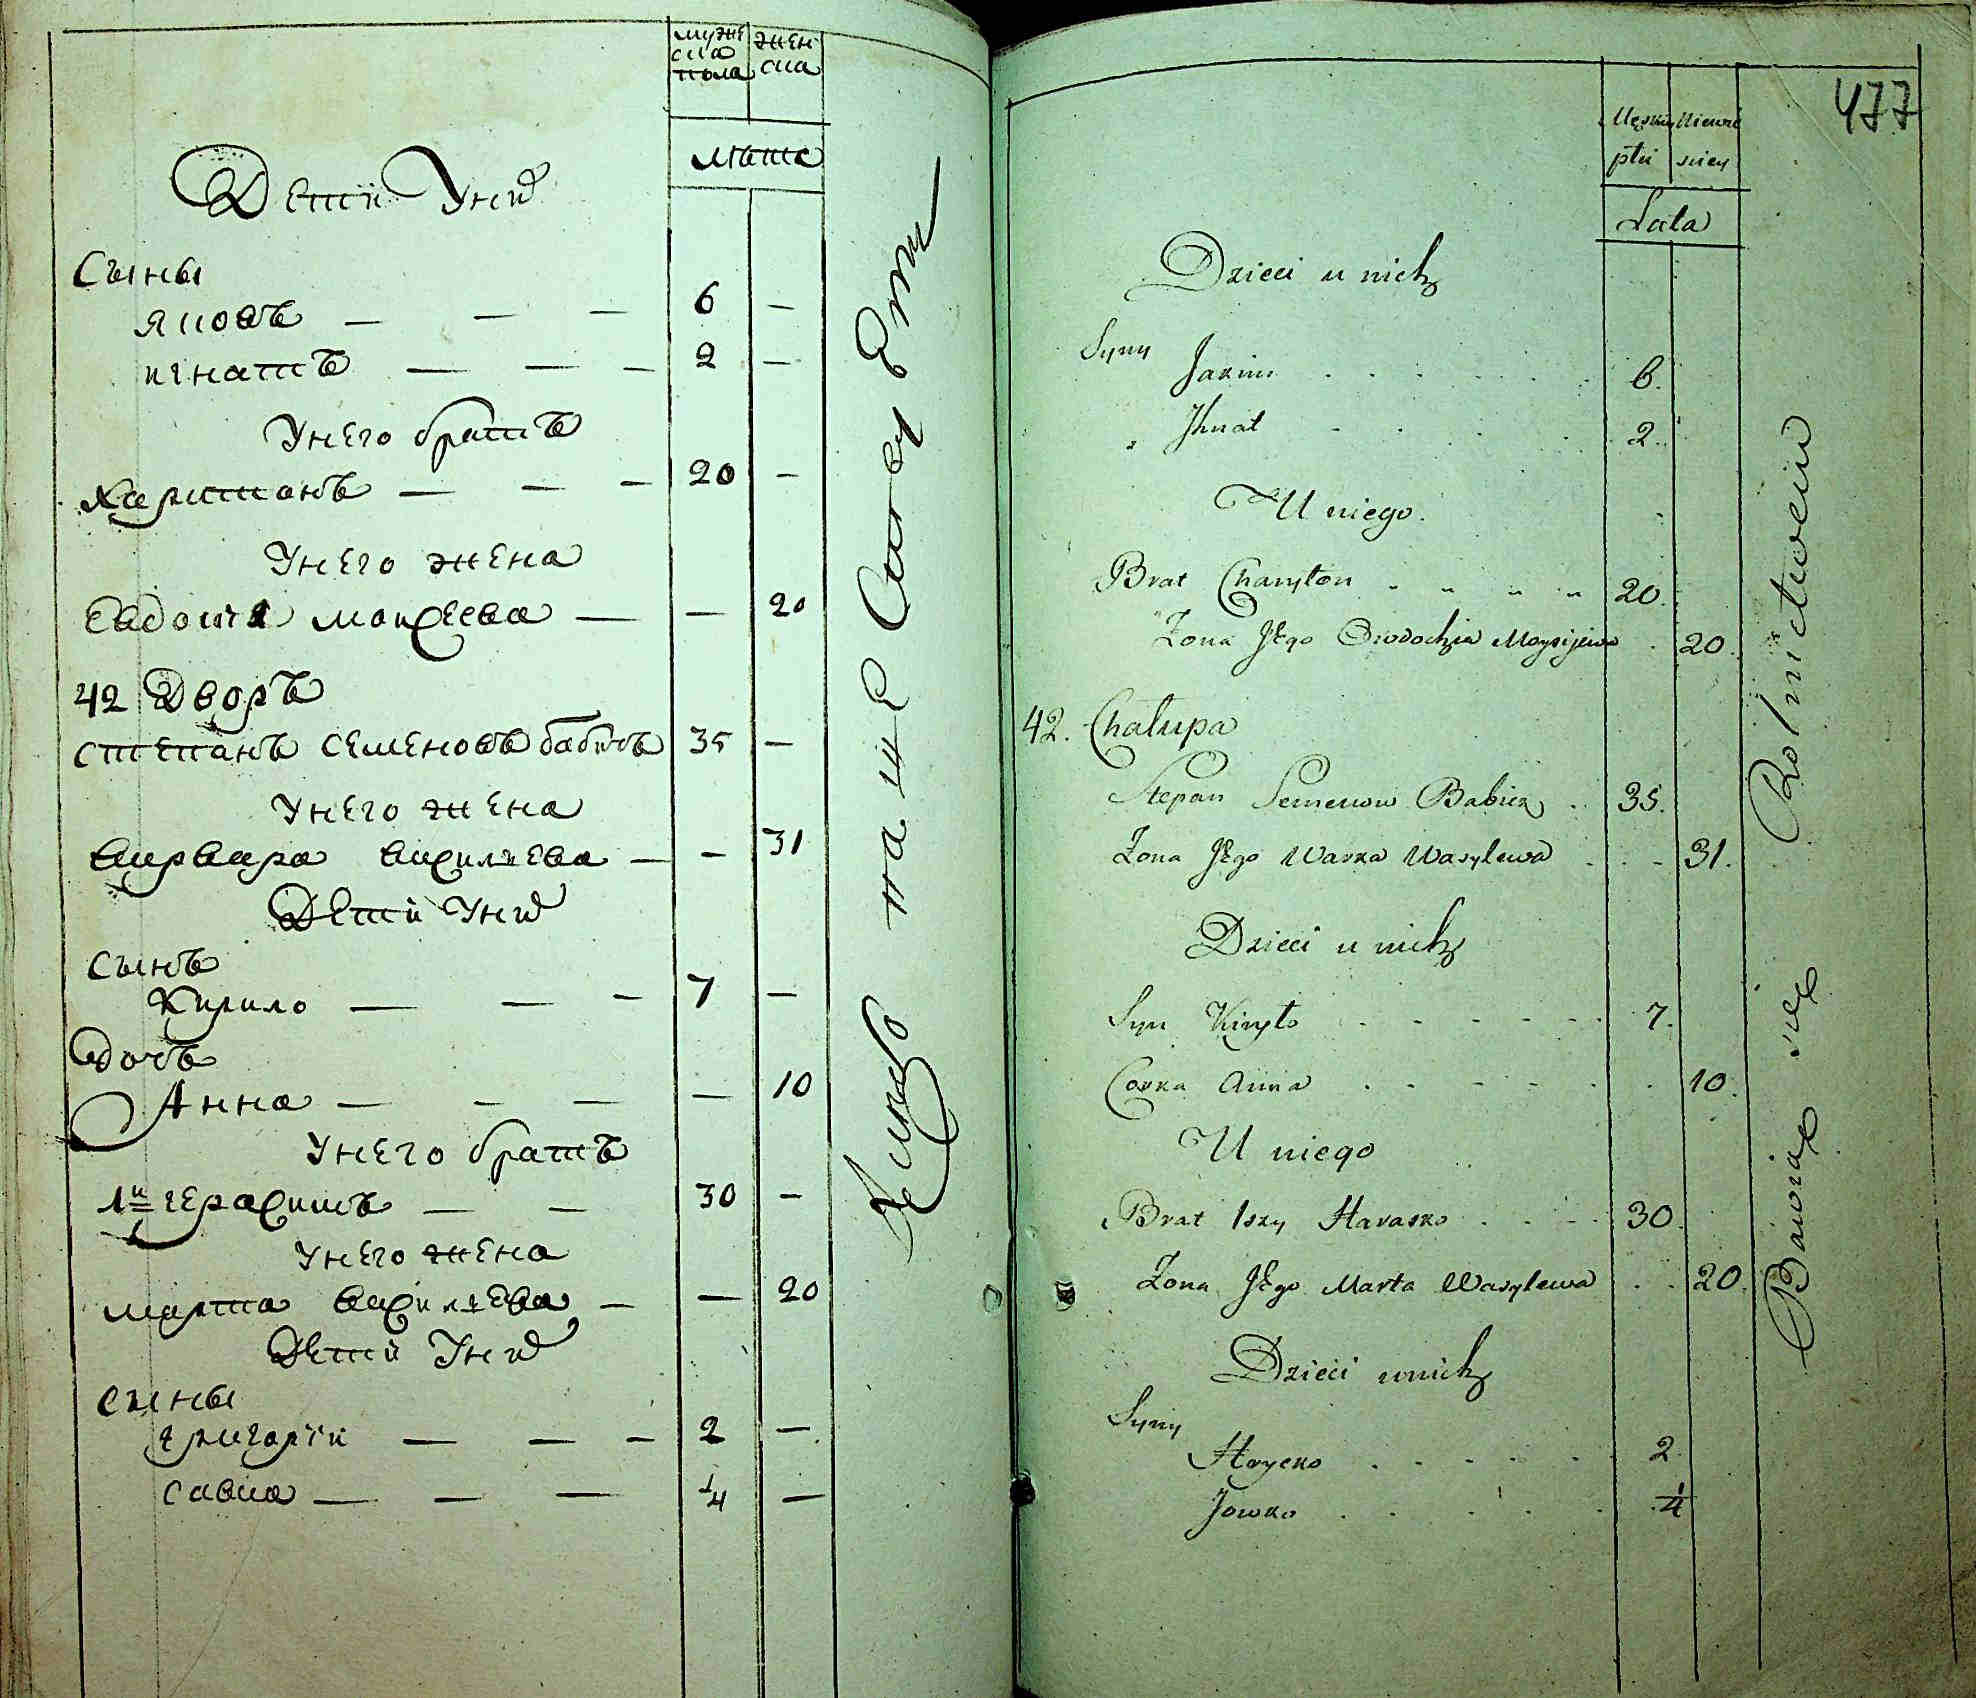 мужеска пола
женска
лѣта
Дети У них
Сыны
яковъ — — — 6 —
игнатъ — — — 2 —
У него братъ
Харитонъ — — — 20 —
У него жена
Евдокия Мойсеева — — 20
42 Дворъ
степанъ семеновъ бабичъ 35 —
У него жена
варвара василиева — — 31
Дети У них
Сынъ
Кирило — — — 7 —
Дочь
Анна — — — — 10
У него братъ
1й герасимъ — — 30 —
У него жена
марта василиева — — 20
Дети У них
сыны
григорїи — — — 2 —
савка — — — 1/4 —
477
Męzkiey płci
Niewieściey
Lata
Dzieci u nich
Syny
Jakim 6.
„ Jhnat 2.
U niego.
Brat Charyton 20.
Zona Jego Owdochia Moysijewa 20.
42. Chałupa
Stepan Semenow Babicz 35.
Zona Jego Warka Wasylewa 31.
Dzieci u nich
Syn Kiryło 7.
Corka Anna 10.
U niego
Brat 1szy Harasko 30.
Zona Jego Marta Wasylewa 20.
Dzieci u nich
Syny
Hrycko 2.
Jowko 1/4
Bawią się Rolnictwem